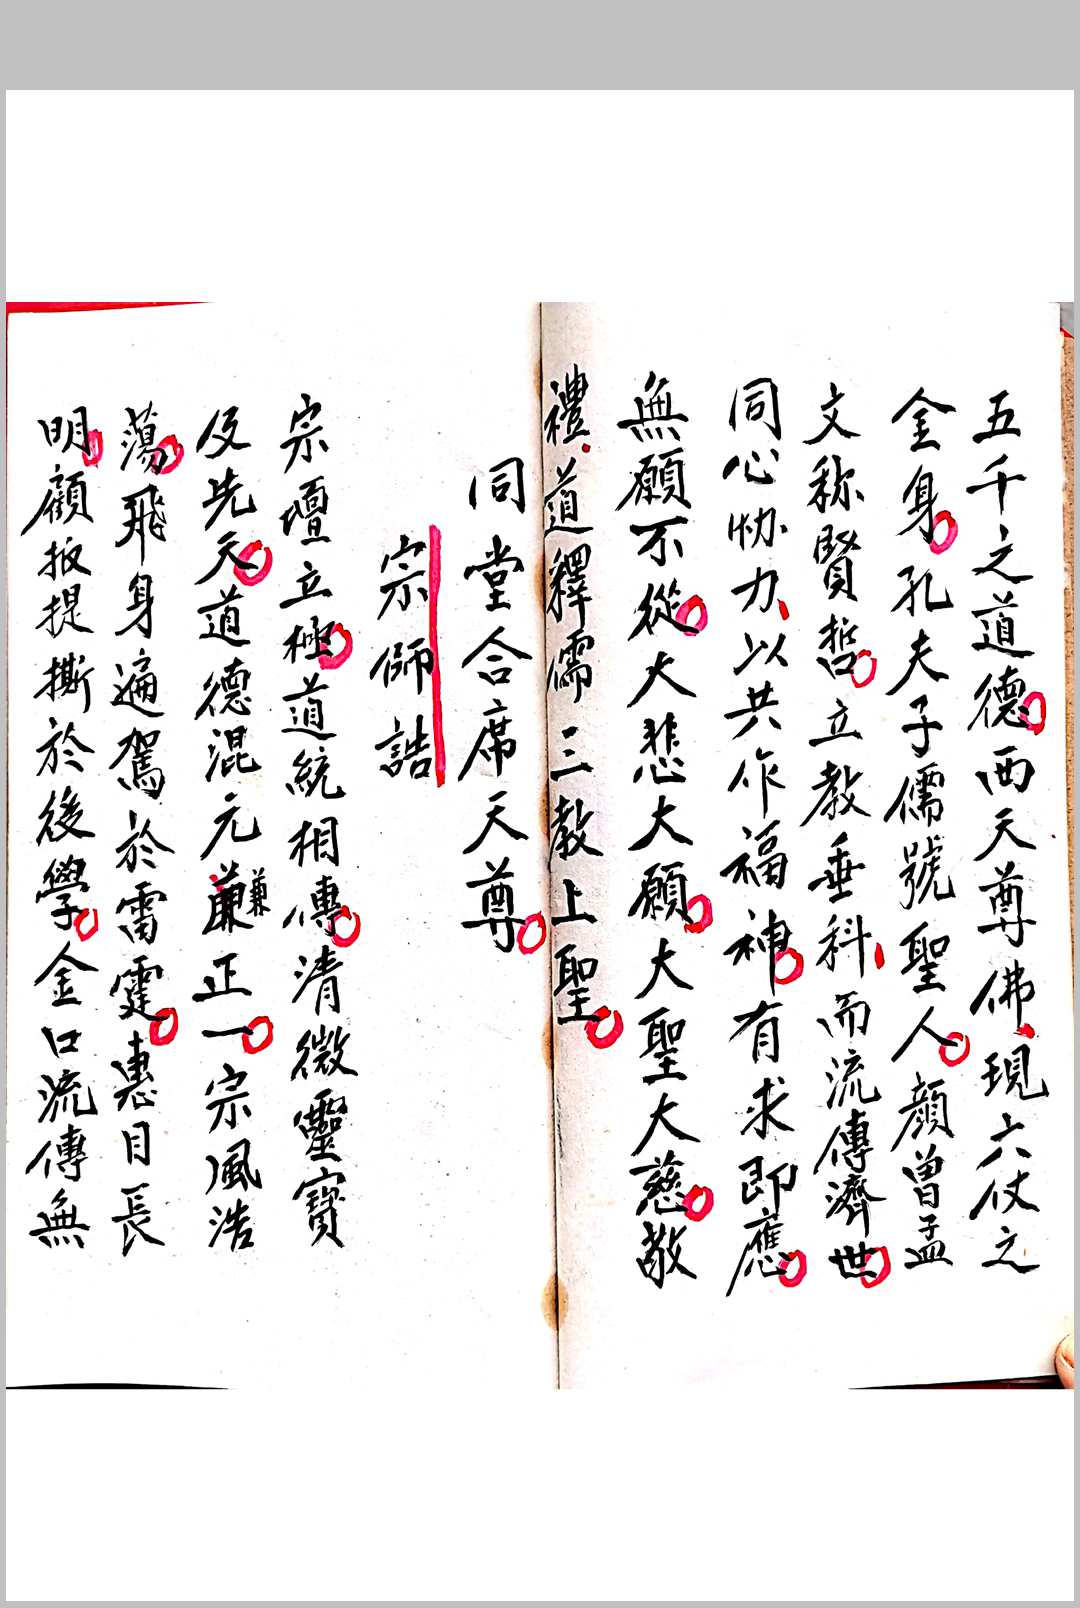 五千之道德西天尊佛現六仗之
金身孔夫子儒號聖人顔曾孟
文称賢哲立教垂科而流傳濟世
同心协力以共作福神有求即應
無願不從大悲大願大聖大慈敬
禮道釋儒三教上聖
同堂合席天尊
宗師誥
宗壇立極道統相傳清微靈寶
及先天道德混元兼正一宗風浩
蕩飛身遍駕於雷霆惠目長
明顧扳提撕於後學金口流傳無